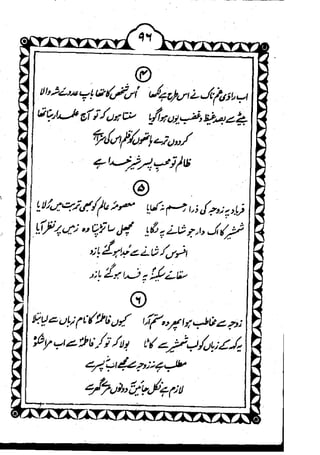 ۹۶
۴
اب راوئ غم ناک نے اس طرح ہے لکھا اُس شخص کا تھا باپ عدوئے شہِ والا
بیٹے سے بصد غیظ و غضب یوں ہوا گویا سنتا ہوں کہ تو آج علمدار بنا تھا
کر دوں ترے ہاتھوں کو قلم اس کی سزا ہے
ظالم تو محبِ پسرِ شیرِ خدا ہے
۵
فریاد پہ زوجہ کی ذرا رحم نہ کھایا معصومۂ عالم کو بھی تربت میں رُلایا
شمشیر کا اک وار جو شانے پہ لگایا مچھلی سا تڑپتا وہ زمیں پر نظر آیا
افسوس کہ شانے سے جُدا ہو گئے بازو
سقائے سکینہؑ پہ فدا ہو گئے بازو
۶
زوجہ سے مخاطب ہوا پھر وہ ستم آرا کیوں فاطمہؑ کا نام زباں سے لیا بتلا
یہ کہہ کے زباں کو لبِ شمشیر سے کاٹا بولا کہ تو کر فاطمہؑ سے اب مرا شکوہ
مطلب ہے نہ زوجہ سے مجھے اب نہ پسر سے
لازم ہے نکل جائیں یہ دونوں مرے گھر سے